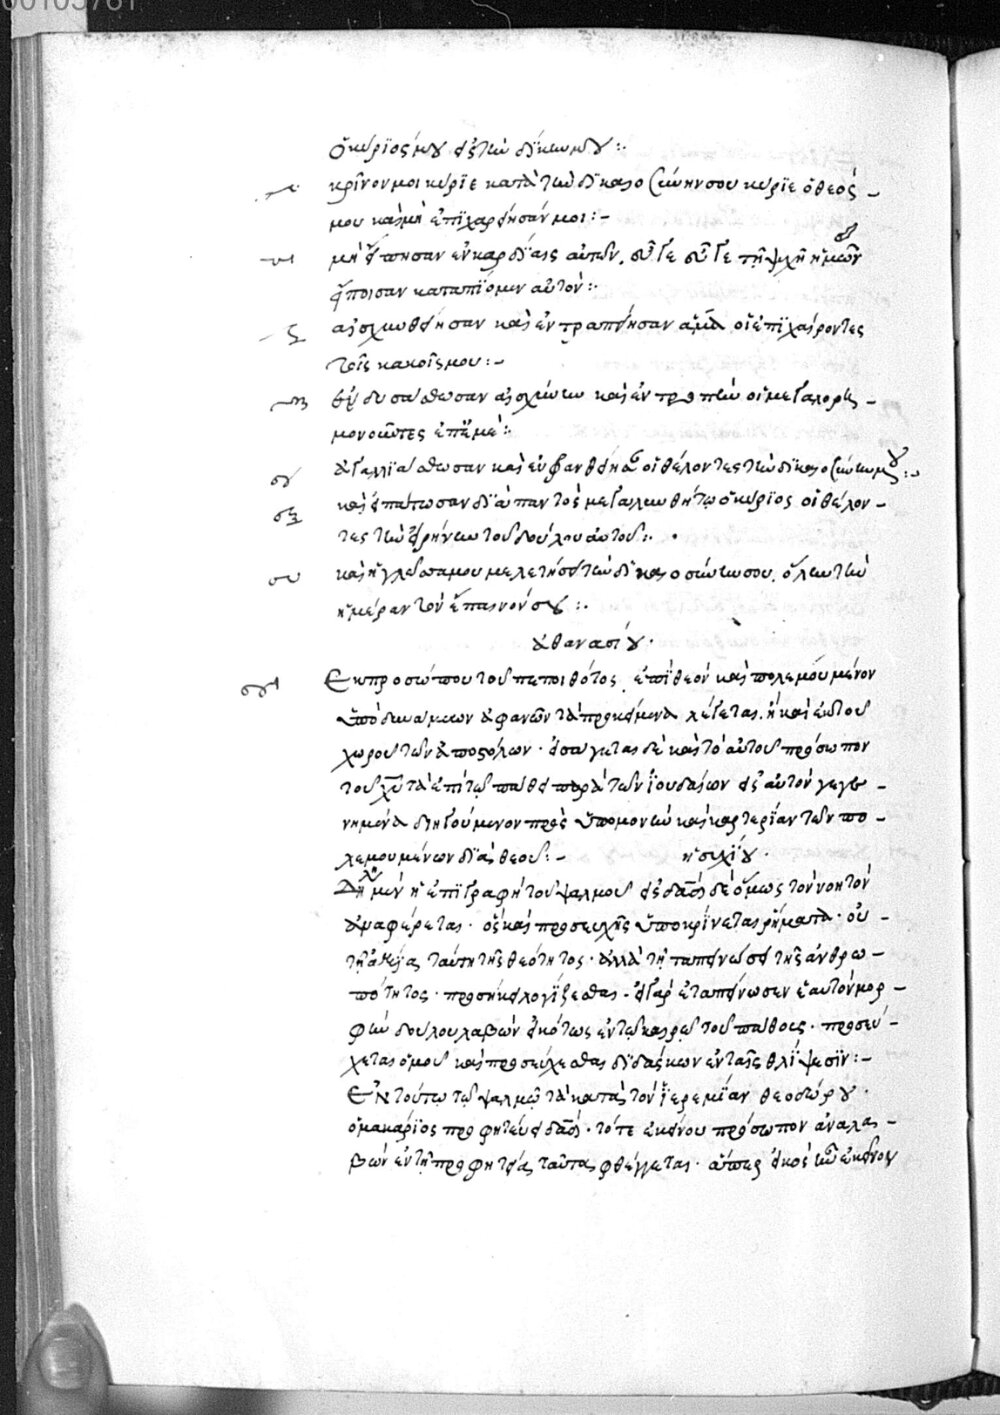 00105761
ὁ κύριός μου εἰς τὴν δίκην μου :·
κρῖνον μοι κύριε κατὰ τὴν δικαιοσύνην σου κύριε ὁ θεός
μου καὶ μὴ ἐπιχαρείησάν μοι :-
μὴ εἴπησαν ἐν καρδίαις αὐτῶν. εὖγε εὖγε τῇ ψυχῇ ἡμῶν
εἴποισαν καταπίομεν αὐτόν :·
αἰσχυνθείησαν καὶ ἐντραπείησαν ἅμα οἱ ἐπιχαίροντες
τοῖς κακοῖς μου :-
ἐνδυσάσθωσαν αἰσχύνην καὶ ἐντροπὴν οἱ μεγαλορη-
μονοῦντες ἐπ' ἐμέ :·
ἀγαλλιάσθωσαν καὶ εὐφρανθείησαν οἱ θέλοντες τὴν δικαιοσύνην μου :-
καὶ εἰπάτωσαν διαπαντὸς μεγαλυνθήτω ὁ κύριος οἱ θέλον-
τες τὴν εἰρήνην τοῦ δούλου αὐτοῦ :·
καὶ ἡ γλῶσσα μου μελετήσει τὴν δικαιοσύνην σου. ὅλην τὴν
ἡμέραν τὸν ἔπαινόν σου :·
ἀθανασίου ·
Ἐκ προσώπου τοῦ πεποιθότος ἐπὶ θεὸν καὶ πολεμουμένου
ὑπὸ δυνάμεων ἀφανῶν τὰ προκείμενα λέγεται. ἢ καὶ ἐκ τοῦ
χοροῦ τῶν ἀποστόλων · εἰσάγεται δὲ καὶ τὸ αὐτοῦ πρόσωπον
τοῦ χυ τὰ ἐπὶ τῷ πάθει παρὰ τῶν ἰουδαίων εἰς αὐτὸν γεγε-
νημένα διηγούμενον πρὸς ὑπομονὴν καὶ καρτερίαν τῶν πο-
λεμουμένων διὰ θεοῦ :- ἡσυχίου ·
Δηλοῖ μὲν ἡ ἐπιγραφὴ τοῦ ψαλμοῦ εἰς δαδ δὲ ὅμως τὸν νοητὸν
ἀναφέρεται · ὃς καὶ προσευχῆς ὑποκρίνεται ῥήματα · οὐ-
τῇ ἀξίᾳ ταύτῃ τῆς θεότητος · ἀλλὰ τῇ ταπεινώσει τῆς ἀνθρω-
πότητος · προσήκει λογίζεσθαι · εἰ γὰρ ἐταπείνωσεν ἑαυτὸν μορ-
φὴν δούλου λαβών εἰκότως ἐν τῷ καιρῷ τοῦ πάθους · προσεύ-
χεται ὁμοῦ καὶ προσεύχεσθαι διδάσκων ἐν ταῖς θλίψεσιν :-
Ἐν τούτῳ τῷ ψαλμῷ τὰ κατὰ τὸν ἱερεμίαν θεοδώρου ·
ὁ μακάριος προφητεύει δαδ · τότε ἐκείνου πρόσωπον ἀναλα-
βὼν ἐν τῇ προφητείᾳ ταῦτα φθέγγεται · ἅπερ εἰκὸς ἦν ἐκεῖνον